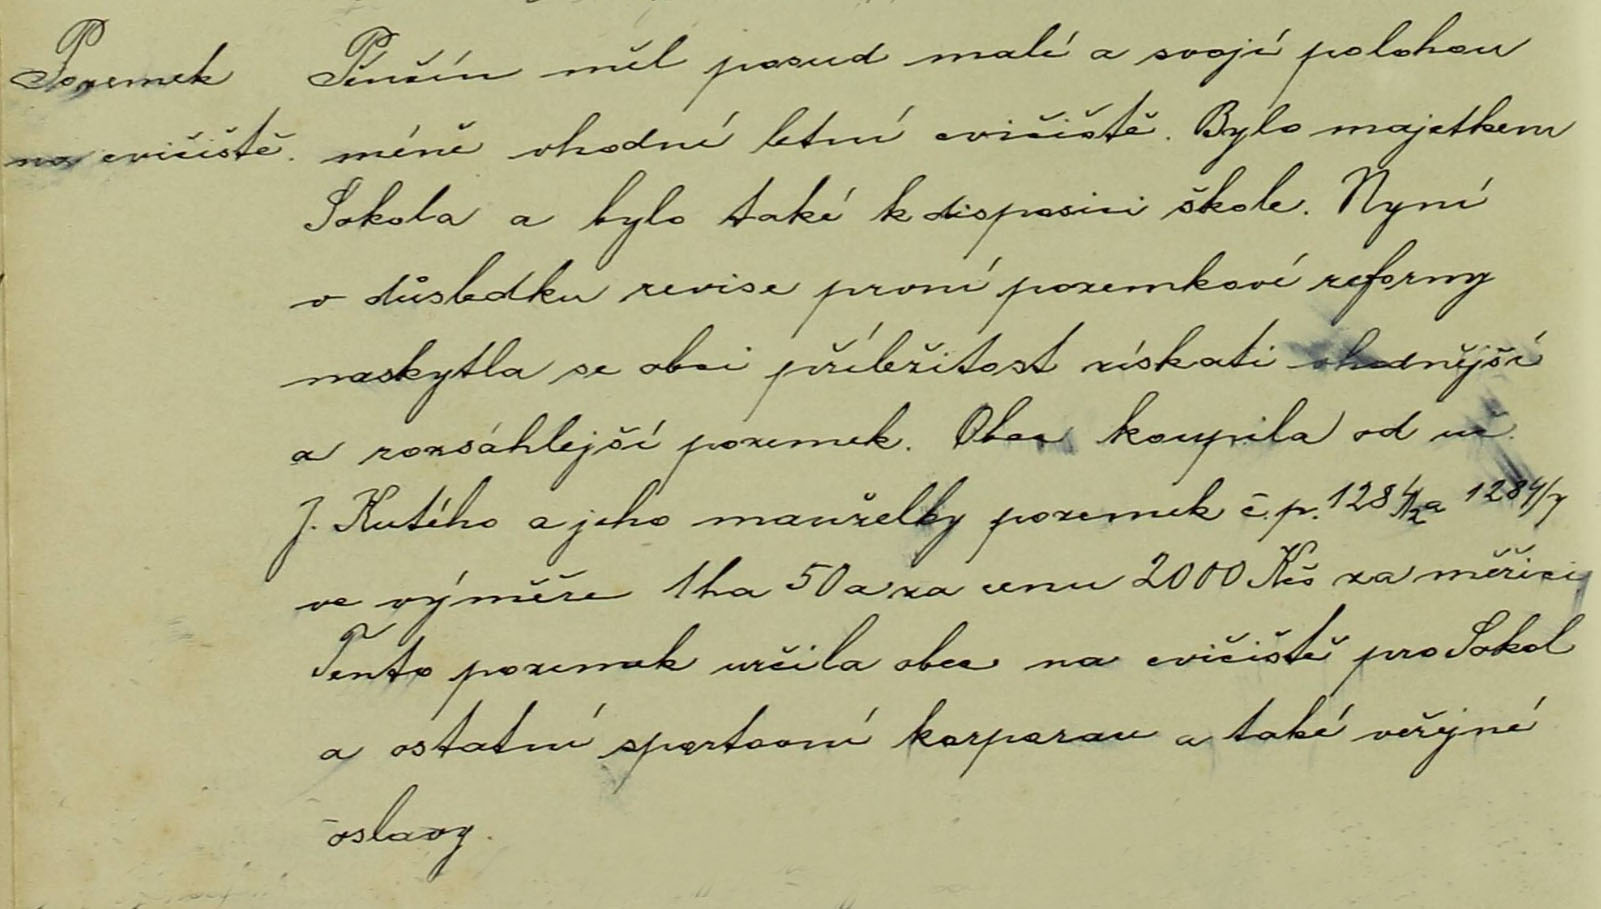 Pozemek
na cvičiště.
Pěnčín měl posud malé a svojí polohou
méně vhodné letní cvičiště. Bylo majetkem
Sokola a bylo také k disposici škole. Nyní
v důsledku revise první pozemkové reformy
naskytla se obci příležitost získati vhodnější
a rozsáhlejší pozemek. Obec koupila od uč.
J. Kutého a jeho manželky pozemek č.p. 1284/2 a 1284/7
ve výměře 1ha 50a za cenu 2000 Kčs za měřici,
Tento pozemek určila obec na cvičiště pro Sokol
a ostatní sportovní korporace a také veřejné
oslavy.